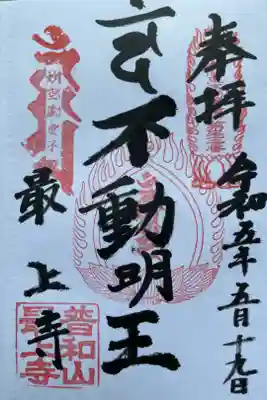 奉拝
令和五年五月十九日
不動明王
最上寺
普和山
最上寺